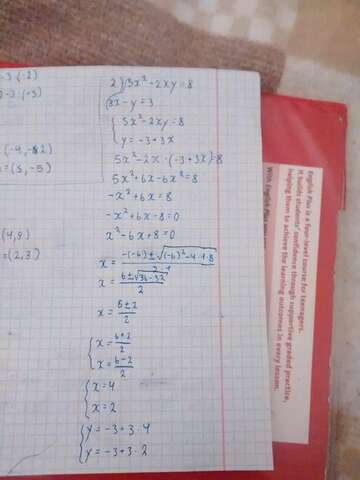 -3·(-2)
-3·(-3)
(-4, -12)
= (5, -5)
(4,9)
= (2,3)
2) 3x² - 2xy = 8
3x - y = 3
5x² - 2xy = 8
y = -3 + 3x
5x² - 2x · (-3 + 3x) = 8
5x² + 6x - 6x² = 8
-x² + 6x = 8
-x² + 6x - 8 = 0
x² - 6x + 8 = 0
x = -(-6) ± √(-6)² - 4·1·8 / 2·1
x = 6 ± √36 - 32 / 2
x = 6 ± 2 / 2
x = 6 + 2 / 2
x = 6 - 2 / 2
x = 4
x = 2
y = -3 + 3 · 4
y = -3 + 3 · 2
English Plus is a four-level course for teenagers.
It builds students' confidence through supportive graded practice,
helping them to achieve the learning outcomes in every lesson.
With English Plus